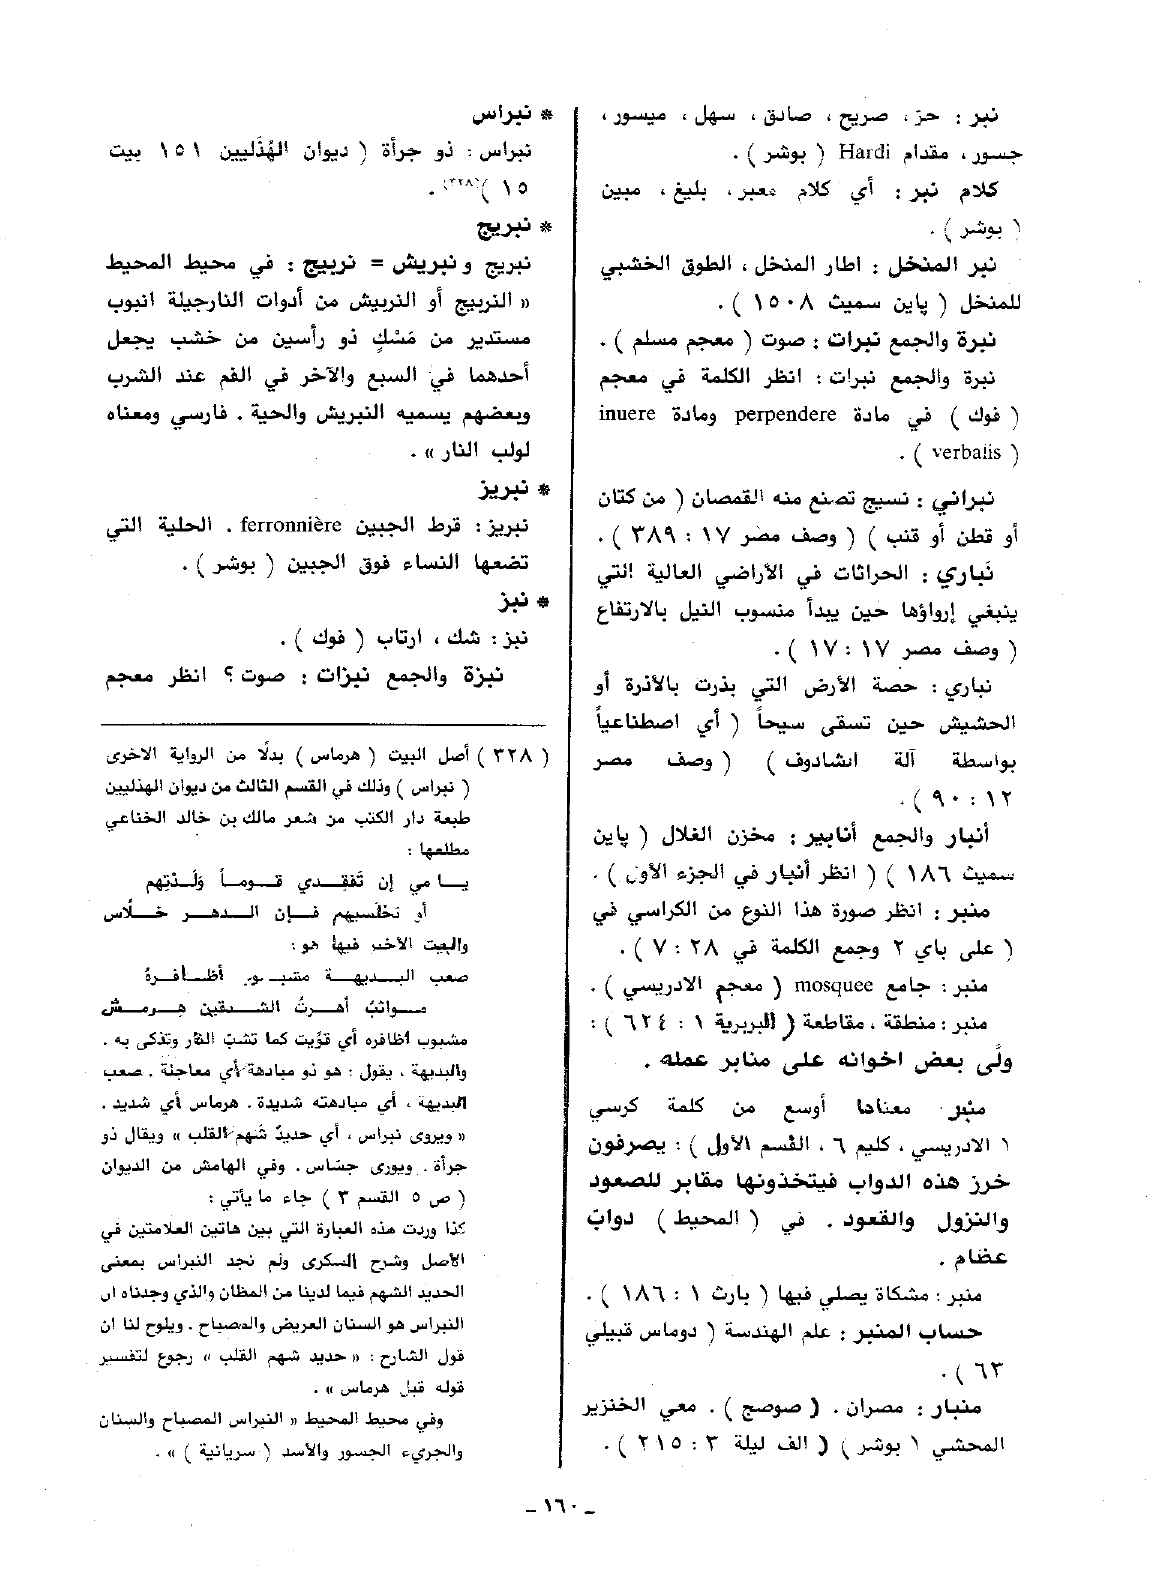 نبر : حرّ ، صريح ، صادق ، سهل ، ميسور ،
جسور ، مقدام Hardi ( بوشر ) .
كلام نبر : أي كلام معبر ، بليغ ، مبين
( بوشر ) .
نبر المنخل : اطار المنخل ، الطوق الخشبي
للمنخل ( پاين سميث ١٥٠٨ ) .
نبرة والجمع نبرات : صوت ( معجم مسلم ) .
نبرة والجمع نبرات : انظر الكلمة في معجم
( فوك ) في مادة perpendere ومادة inuere
( verbalis ) .
نبراني : نسيج تصنع منه القمصان ( من كتان
أو قطن أو قنب ) ( وصف مصر ١٧ : ٣٨٩ ) .
نَباري : الحراثات في الأراضي العالية التي
ينبغي إرواؤها حين يبدأ منسوب النيل بالارتفاع
( وصف مصر ١٧ : ١٧ ) .
نباري : حصة الأرض التي بذرت بالاذرة أو
الحشيش حين تسقى سيحاً ( أي اصطناعياً
بواسطة آلة الشادوف ) ( وصف مصر
١٢ : ٩٠ ) .
أنبار والجمع أنابير : مخزن الغلال ( پاين
سميث ١٨٦ ) ( انظر أنبار في الجزء الأول ) .
منبر : انظر صورة هذا النوع من الكراسي في
( على باي ٢ وجمع الكلمة في ٢٨ : ٧ ) .
منبر : جامع mosquee ( معجم الادريسي ) .
منبر : منطقة ، مقاطعة ( البربرية ١ : ٦٢٤ ) :
ولّى بعض اخوانه على منابر عمله .
منبر معناها أوسع من كلمة كرسي
( الادريسي ، كليم ٦ ، القسم الأول ) : يصرفون
خرز هذه الدواب فيتخذونها مقابر للصعود
والنزول والقعود . في ( المحيط ) دوابّ
عظام .
منبر : مشكاة يصلي فيها ( بارث ١ : ١٨٦ ) .
حساب المنبر : علم الهندسة ( دوماس قبيلي
٦٣ ) .
منبار : مصران . ( صوصج ) . معي الخنزير
المحشي ( بوشر ) ( الف ليلة ٣ : ٢١٥ ) .
* نبراس
نبراس : ذو جرأة ( ديوان الهُذَليين ١٥١ بيت
١٥ )(٣٢٨) .
* نبريج
نبريج و نبريش = نربيج : في محيط المحيط
« النربيج أو النربيش من أدوات النارجيلة انبوب
مستدير من مَسْكٍ ذو رأسين من خشب يجعل
أحدهما في السبع والآخر في الفم عند الشرب
وبعضهم يسميه النبريش والحية . فارسي ومعناه
لولب النار » .
* نبريز
نبريز : قرط الجبين ferronnière . الحلية التي
تضعها النساء فوق الجبين ( بوشر ) .
* نبز
نبز : شك ، ارتاب ( فوك ) .
نبزة والجمع نبزات : صوت ؟ انظر معجم
( ٣٢٨ ) أصل البيت ( هرماس ) بدلًا من الرواية الاخرى
( نبراس ) وذلك في القسم الثالث من ديوان الهذليين
طبعة دار الكتب من شعر مالك بن خالد الخناعي
مطلعها :
يـا مي إن تَفقِـدي قـومـاً وَلَـدْتِهم
أو تخلَسيهم فـإن الـدهـر خـلّاس
والبيت الأخير فيها هو :
صعب البـديهـة مشبـوبٍ أظـافـرهُ
مـواثبٌ أهـرتُ الشـدقين هـرمـاسُ
مشبوب اظافره أي قوّيت كما تشبّ النّار وتذكى به .
والبديهة ، يقول : هو ذو مبادهة أي معاجلة . صعب
البديهة ، أي مبادهته شديدة . هرماس أي شديد .
« ويروى نبراس ، أي حديدٌ شَهم القلب » ويقال ذو
جرأة . ويورى جسّاس . وفي الهامش من الديوان
( ص ٥ القسم ٣ ) جاء ما يأتي :
كذا وردت هذه العبارة التي بين هاتين العلامتين في
الأصل وشرح السكرى ولم نجد النبراس بمعنى
الحديد الشهم فيما لدينا من المظان والذي وجدناه ان
النبراس هو السنان العريض والمصباح . ويلوح لنا ان
قول الشارح : « حديد شهم القلب » رجوع لتفسير
قوله قبل هرماس » .
وفي محيط المحيط « النبراس المصباح والسنان
والجريء الجسور والأسد ( سريانية ) » .
ـ ١٦٠ ـ